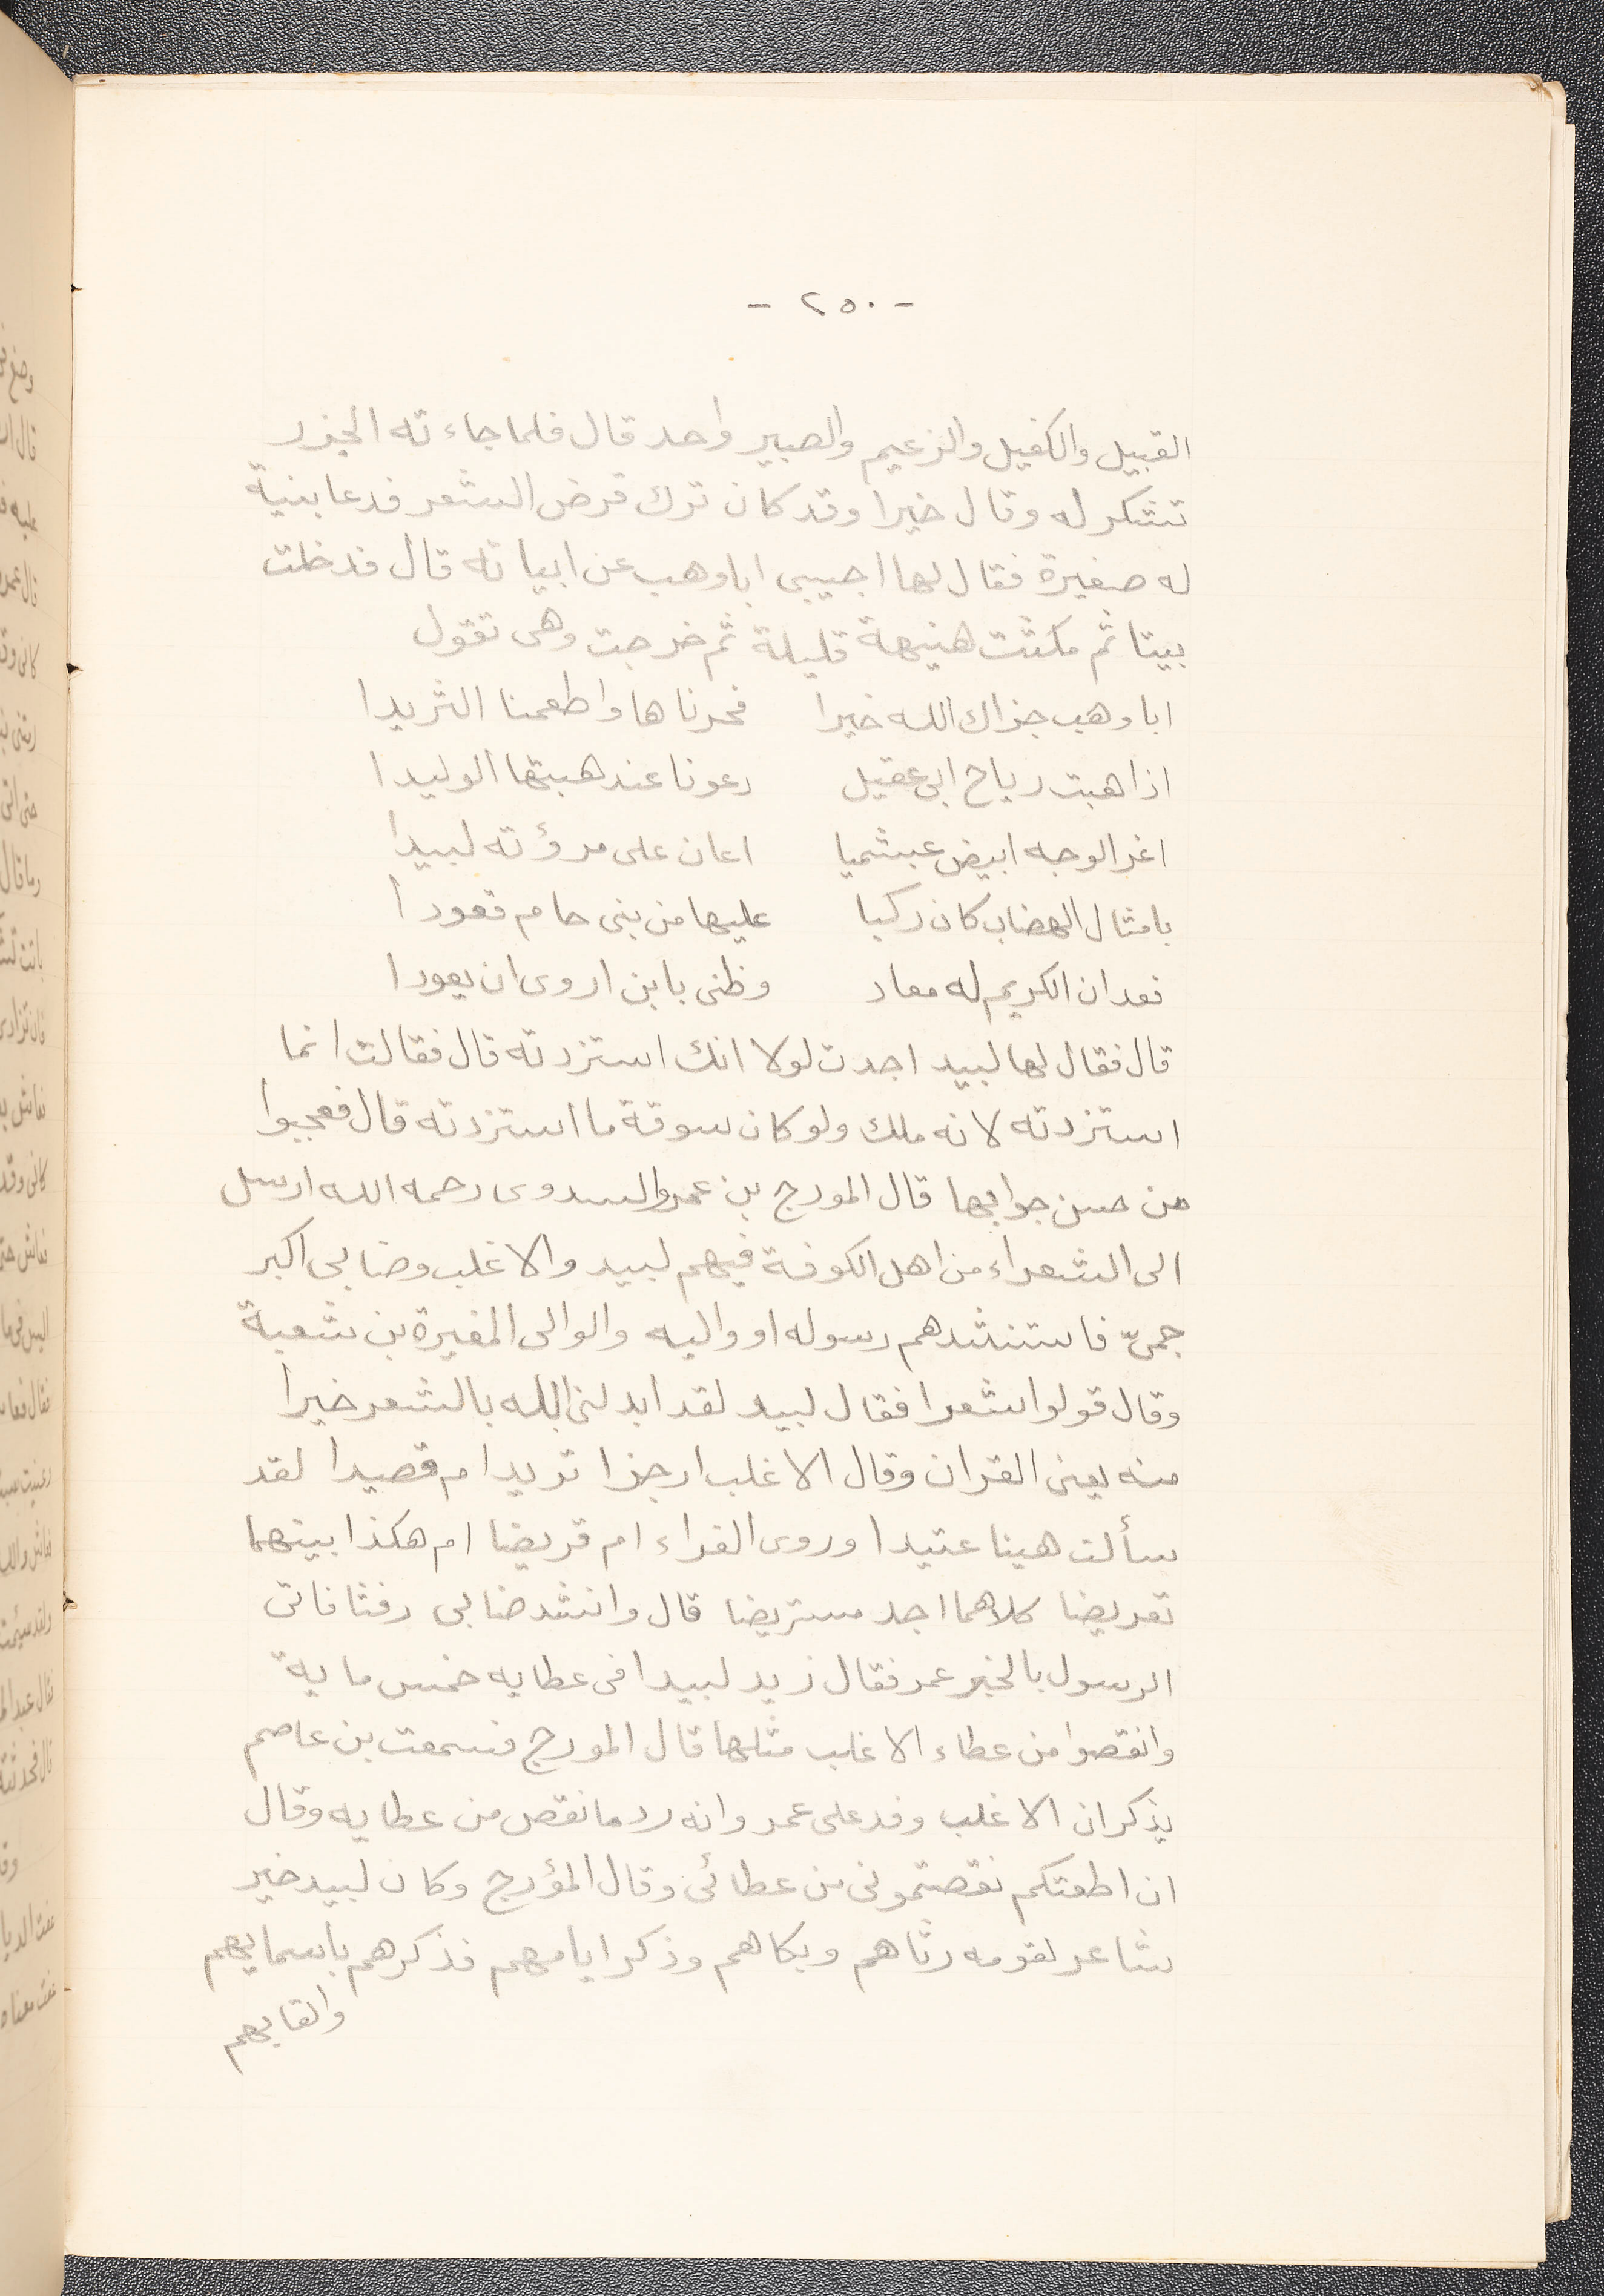 - ٢٥٠ -
القبيل والكفيل والزعيم والصبير واحد قال فلما جاءته الجزر
تشكر له وقال خيرا وقد كان ترك قرض الشعر فدعا بنية
له صغيرة فقال لها اجيبى ابا وهب عن ابياته قال فدخلت
بيتا ثم مكثت هنيهة قليلة ثم خرجت وهى تقول
ابا وهب جزاك الله خيرا نحرناها واطعمنا الثريدا
اذا هبت رياح ابى عقيل دعونا عند هبتها الوليدا
اغر الوجه ابيض عبشميا اعان على مروؤته لبيدا
بامثال الهضاب كان ركبا عليها من بنى حام قعودا
نعد ان الكريم له معاد وظنى بابن اروى ان يعودا
قال فقال لها لبيد اجدت لولا انك استزدته قال فقالت انما
استزدته لانه ملك ولو كان سوقة ما استزدته قال فعجبوا
من حسن جوابها قال المورج بن عمرو السدوى رحمه الله ارسل
الى الشعراء من اهل الكوفة فيهم لبيد والاغلب وضابى اكبر
جمىّ فاستنشدهم رسوله او واليه والوالى المغيرة بن شعبة
وقال قولوا شعرا فقال لبيد لقد ابدلنى الله بالشعر خيرا
منه يعنى القران وقال الاغلب ارجزا تريد ام قصيدا لقد
سألت هينا عتيدا وروى الفراء ام قريضا ام هكذا بينهما
تعريضا كلاهما اجد مستريضا قال وانشد ضابى رفثا فاتى
الرسول بالخبر عمر فقال زيد لبيدا فى عطايه خمس ماية
وانقصوا من عطاء الاغلب مثلها قال المورج فسمعت بن عاصم
يذكر ان الاغلب وفد على عمر وانه رد ما نقص من عطايه وقال
ان اطعتكم نقصتمونى من عطائى وقال المؤرج وكان لبيد خير
شاعر لقومه رثاهم وبكاهم وذكر ايامهم فذكرهم باسمايهم
والقابهم